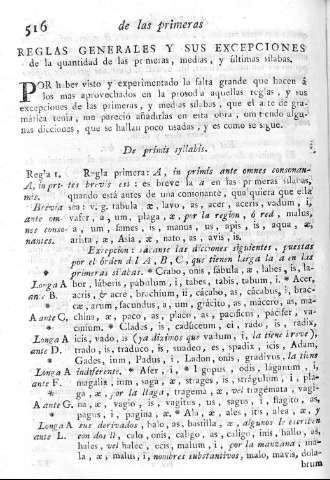 516 de las primeras
REGLAS GENERALES Y SUS EXCEPCIONES
de la quantidad de las primeras, medias, y últimas silabas.
POR haber visto y experimentado la falta grande que hacen á
los mas aprovechados en la prosodia aquellas reglas, y sus
excepciones de las primeras, y medias silabas, que el arte de gra-
mática tenia, me pareció añadirlas en esta obra, omitiendo algu-
nas dicciones, que se hallan poco usadas, y es como se sigue.
De primis syllabis.
Regla 1. Regla primera: A, in primis ante omnes consonan-
A, in pri- tes brevis est: es breve la a en las primeras silabas,
mis, quando está antes de una consonante, qualquiera que ella
Brevia sea: v. g. tabula, æ, lavo, as, acer, aceris, vadum, i,
ante om- vafer, a, um, plaga, æ, por la region, ó red, malus,
nes conso- a, um, fames, is, manus, us, apis, is, aqua, æ,
nantes. arista, æ, Asia, æ, nato, as, avis, is.
Excepcion: sácanse las dicciones siguientes, puestas
por el órden del A, B, C, que tienen larga la a en las
primeras silabas. * Crabo, onis, fábula, æ, labes, is, la-
Longa A bor, láberis, pabulum, i, tabes, tabis, tabum, i. * Acer,
ante B. acris, & acre, brachium, ii, cácabo, as, cácabus, i, brac-
* cæ, arum, facundus, a, um, glácito, as, mácero, as, ma-
A ante C. china, æ, paco, as, placo, as, pacificus, pacifer, va-
* cinium. * Clades, is, caduceum, ei, rado, is, radix,
Longa A icis, vado, is (ya diximos que vadum, i, la tiene breve),
ante D. trado, is, traduco, is, suadeo, es, spadix, icis, Adam,
* Gades, ium, Padus, i, Ladon, onis, gradivus, la tiene
Longa A indiferente. * Afer, i, * Lagopus, odis, laganum, i,
ante F. magalia, ium, saga, æ, strages, is, strágulum, i, pla-
* ga, æ, por la llaga, tragema, æ, vel tragémata, vagi-
A ante G. na, æ, vagio, is, vagitus, us, sagus, i, flagito, as,
* pagus, i, pagina, æ. * Ala, æ, ales, itis, alea, æ, y
Longa A sus derivados, balo, as, bastilla, æ, algunos le escriben
ante L. con dos ll, calo, onis, caligo, as, caligo, inis, hálito, as,
hales, vel halec, ecis, malum, i, por la manzana; ma-
la, æ, malus, i, nombres substantivos, malo, mavis, dola-
brum